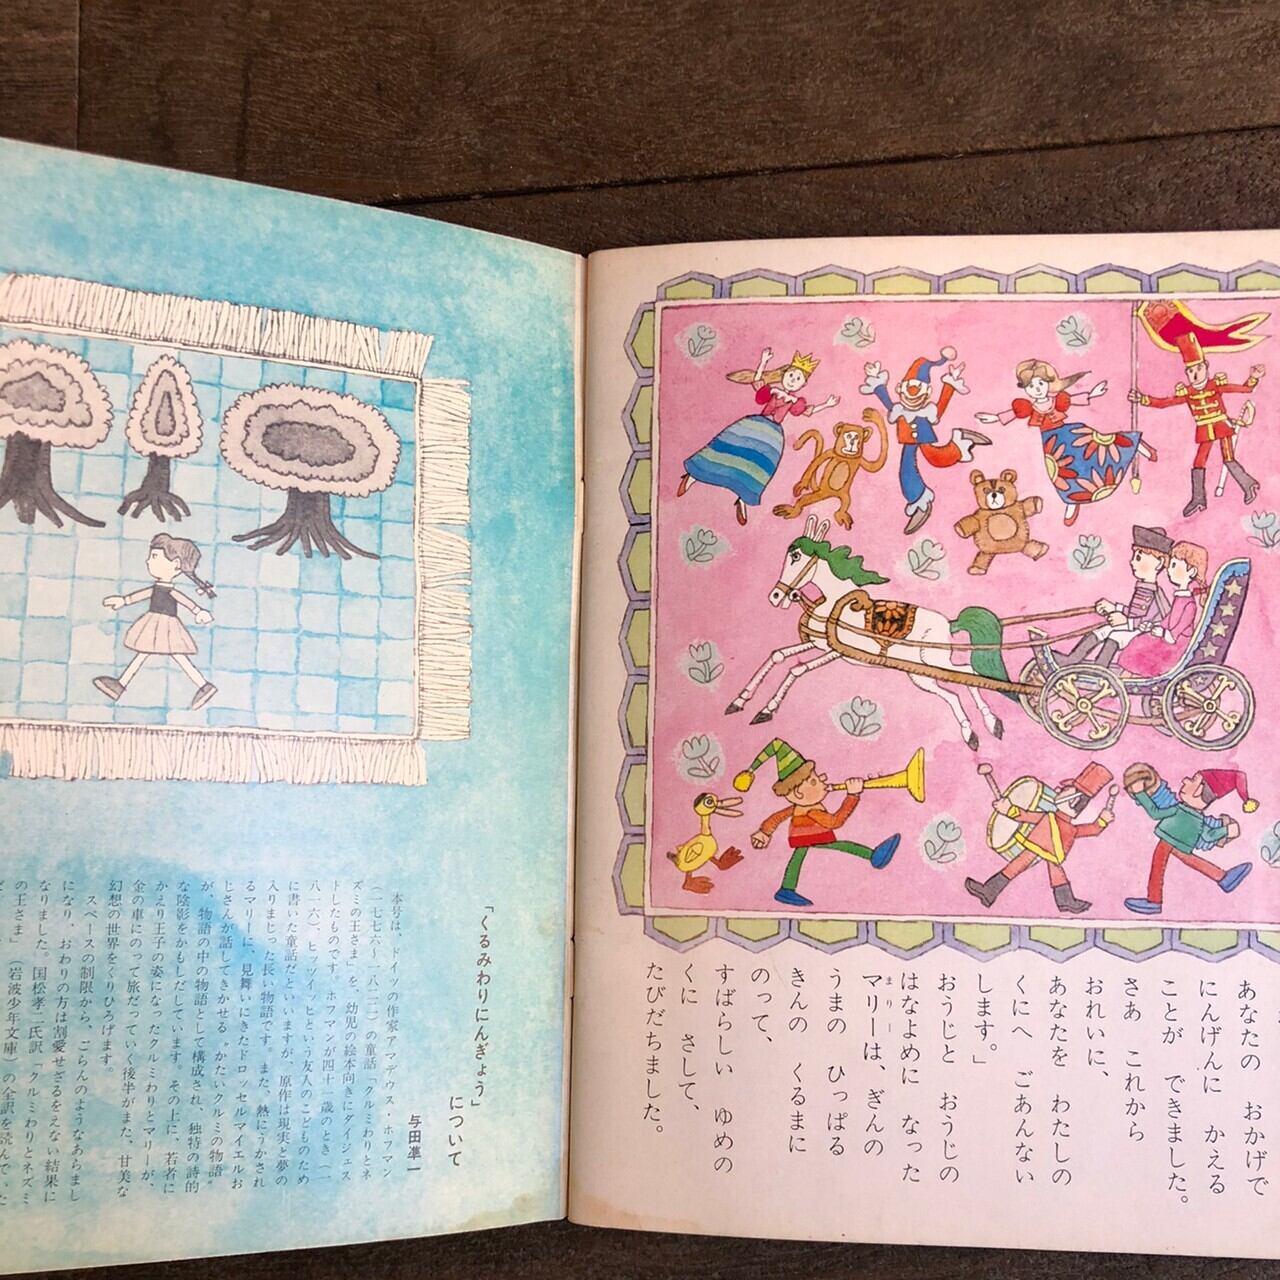 あなたの おかげで
にんげんに かえる
ことが できました。
さあ これから
おれいに、
あなたを わたしの
くにへ ごあんない
します。」
おうじと おうじの
はなよめに なった
マリーは、ぎんの
まりー
うまの ひっぱる
きんの くるまに
のって、
すばらしい ゆめの
くに さして、
たびだちました。
「くるみわりにんぎょう」
について
与田凖一
本号は、ドイツの作家アマデウス・ホフマン
(一七七六〜一八二二)の童話「クルミわりとネ
ズミの王さま」を、幼児の絵本向きにダイジェス
トしたものです。ホフマンが四十一歳のとき(一
八一六)、ヒッツイッヒという友人のこどものため
に書いた童話だといいますが、原作は現実と夢の
入りまじった長い物語です。また、熱にうかされ
るマリーに、見舞いにきたドロッセルマイエルお
じさんが話してきかせる〝かたいクルミの物語〟
が、物語の中の物語として構成され、独特の詩的
な陰影をかもしだしています。その上に、若者に
かえり王子の姿になったクルミわりとマリーが、
金の車にのって旅だっていく後半がまた、甘美な
幻想の世界をくりひろげます。
スペースの制限から、ごらんのようなあらまし
になり、おわりの方は割愛せざるをえない結果に
なりました。国松孝二氏訳「クルミわりとネズミ
の王さま」(岩波少年文庫)の全訳を読んで、た